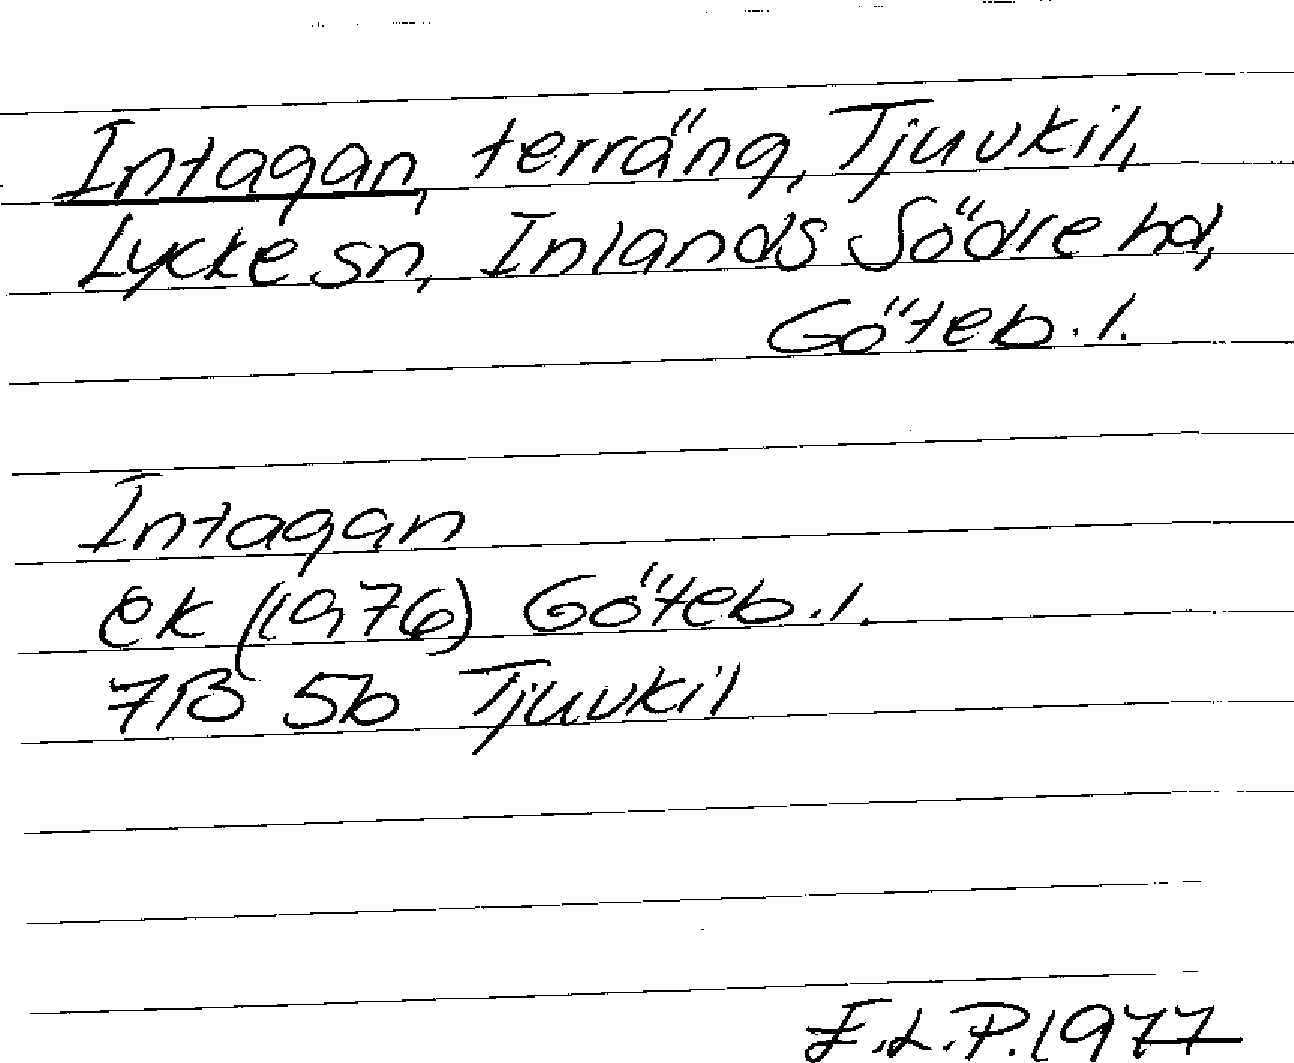 Intagan, terräng, Tjuvkil,
Lycke sn, Inlands Södre hd,
Göteb. l.
Intagan
ek (1976) Göteb. l.
7B 5b Tjuvkil
F.L.P. 1977